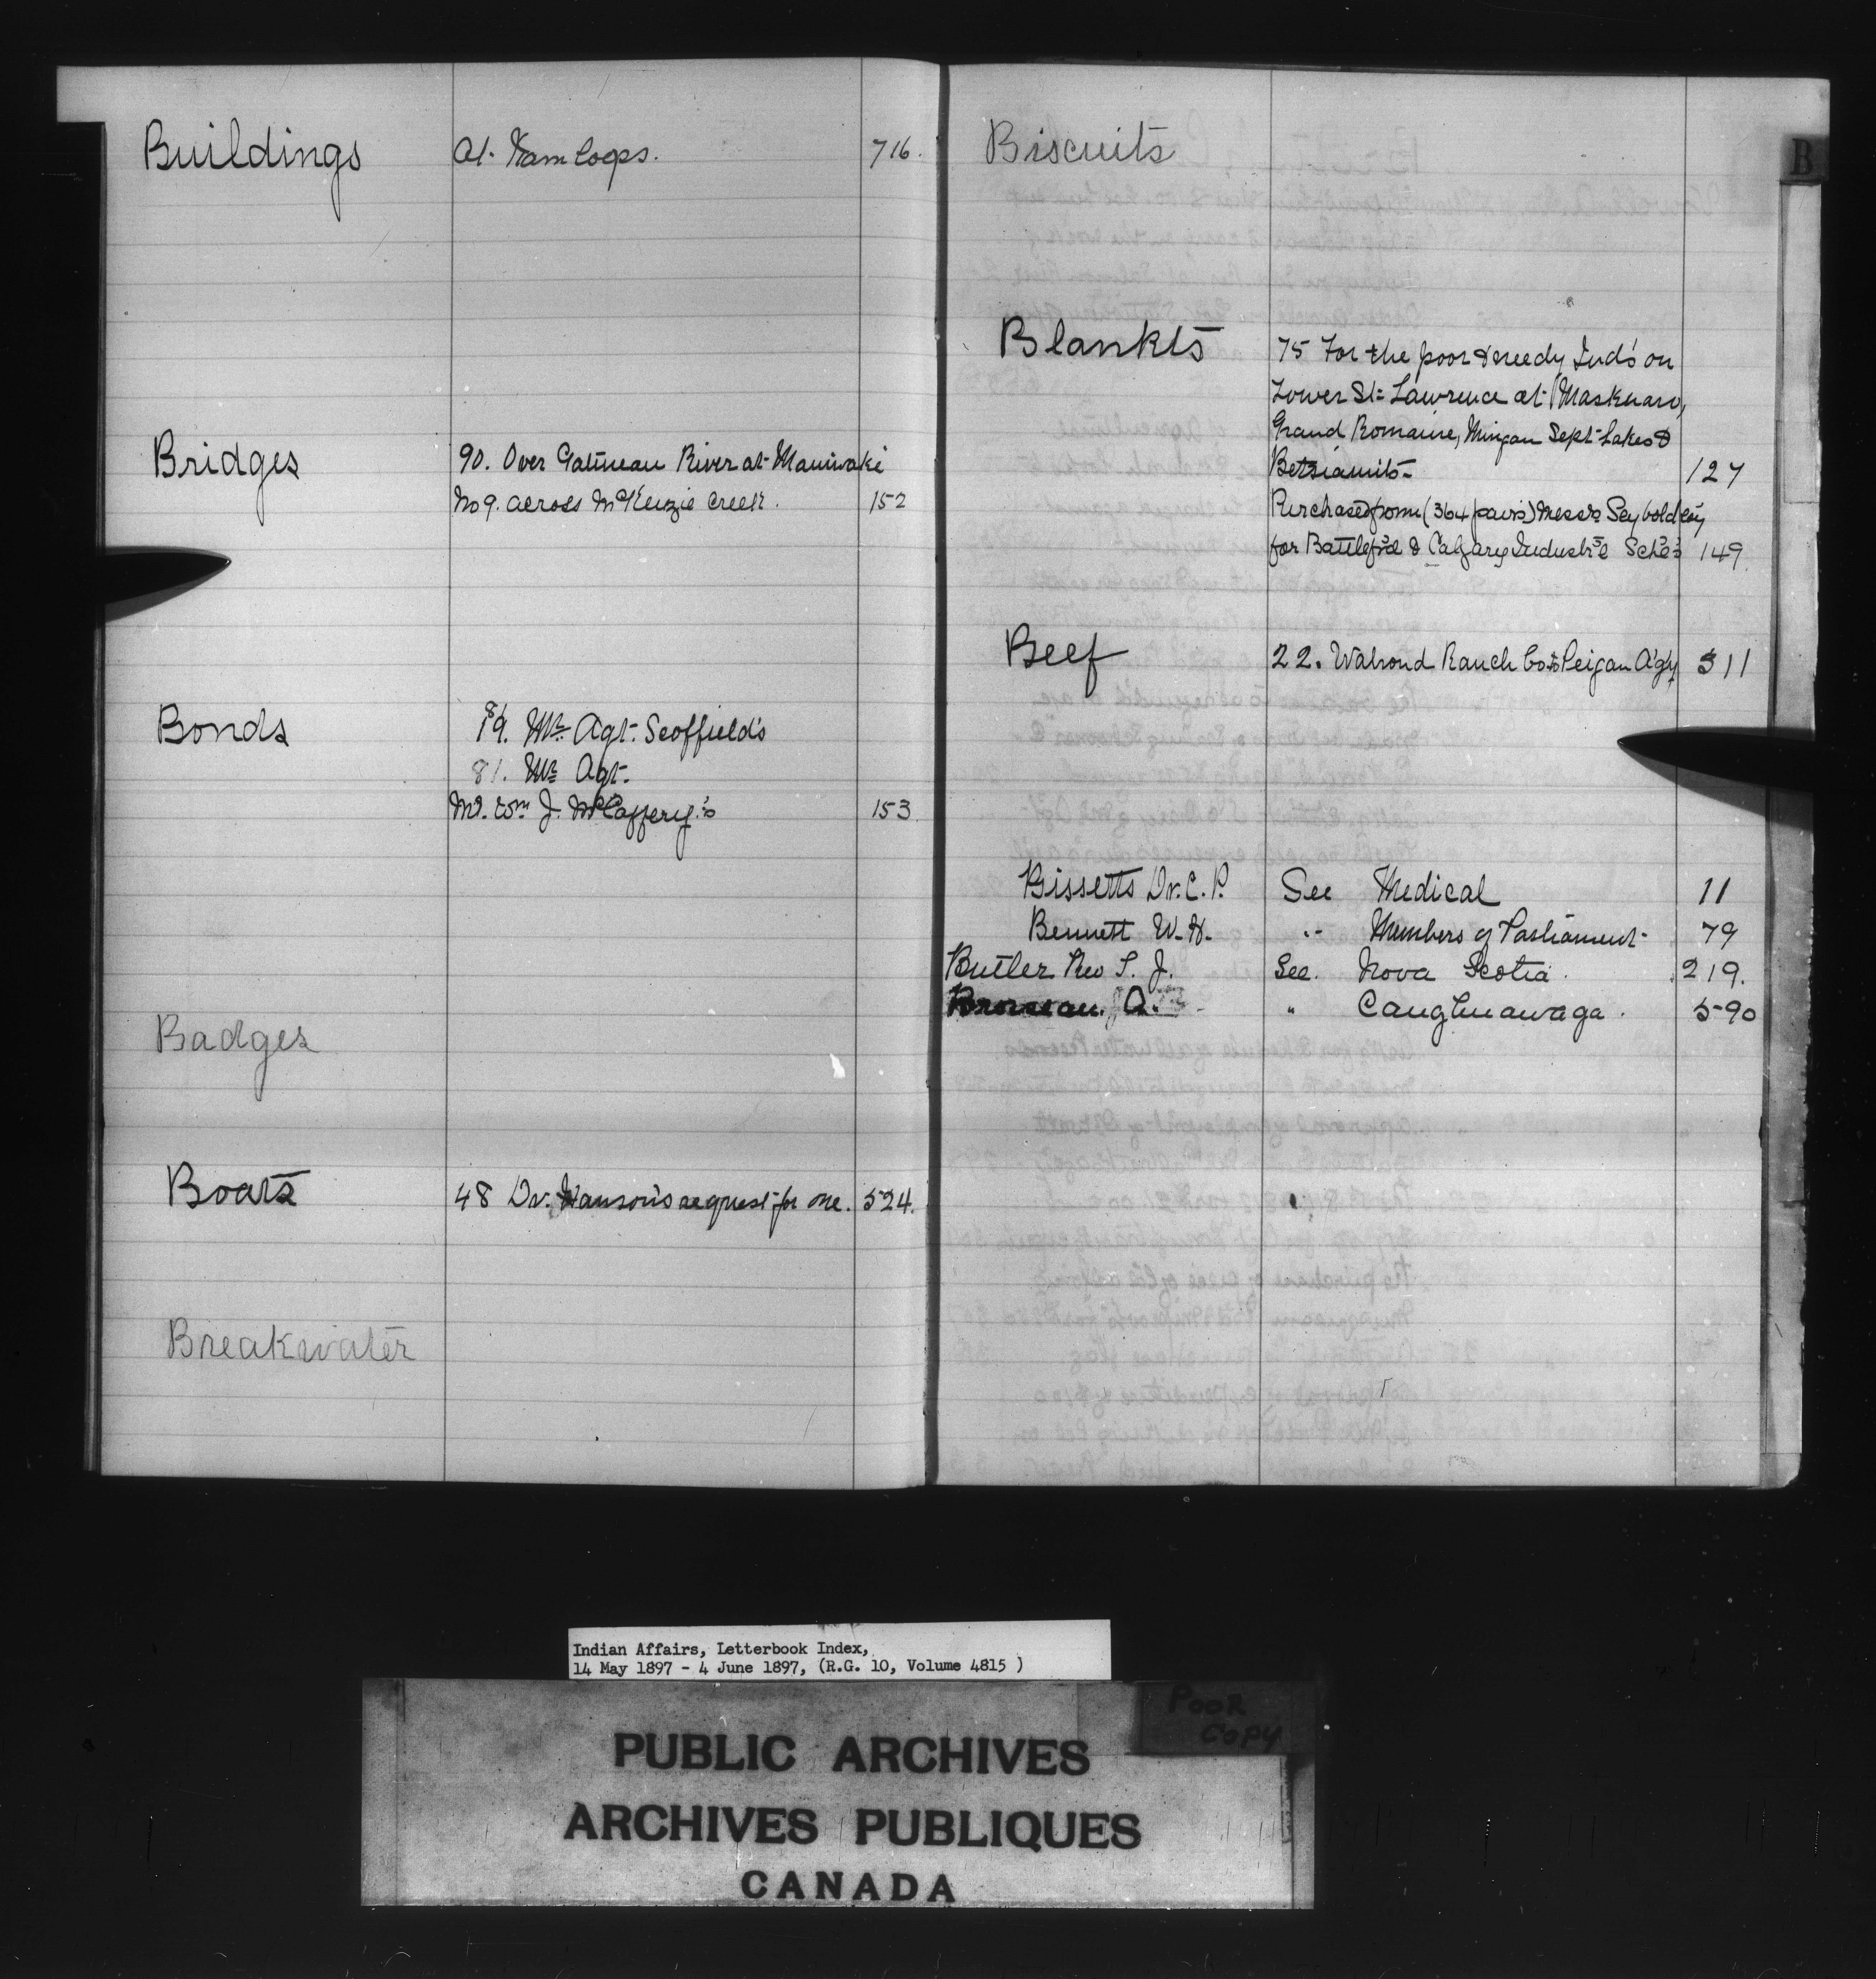 Buildings At Kamloops. 716.
Bridges 90. Over Gatineau River at Maniwaki
No 9. across McKenzie Creek. 152
Bonds 81. Mr. Agt. Scoffield's
81. Mr. Agt.
Mr. Wm J. McCaffery's 153
Badges
Boats 48 Dr. Hanson's request for one. 524.
Breakwater
B
Biscuits
Blankts 75 For the poor & needy Inds on
Lower St. Lawrence at Maskuaro,
Grand Romaine, Mingan Sept-Lakes &
Betsiamits 127
Purchased from (364 pairs) Messrs Seybold
for Battlef'd & Calgary Industr'l Sch'ls 149.
Beef 22. Walrond Ranch Co to Peigan Ag'y 311
Bissetts Dr. C. P. See Medical 11
Bennett W. H. " Members of Parliament 79
Butler Rev S. J. See. Nova Scotia. 219.
A. " Caughnawaga. 590
Indian Affairs, Letterbook Index,
14 May 1897 - 4 June 1897, (R.G. 10, Volume 4815 )
POOR
COPY
PUBLIC ARCHIVES
ARCHIVES PUBLIQUES
CANADA